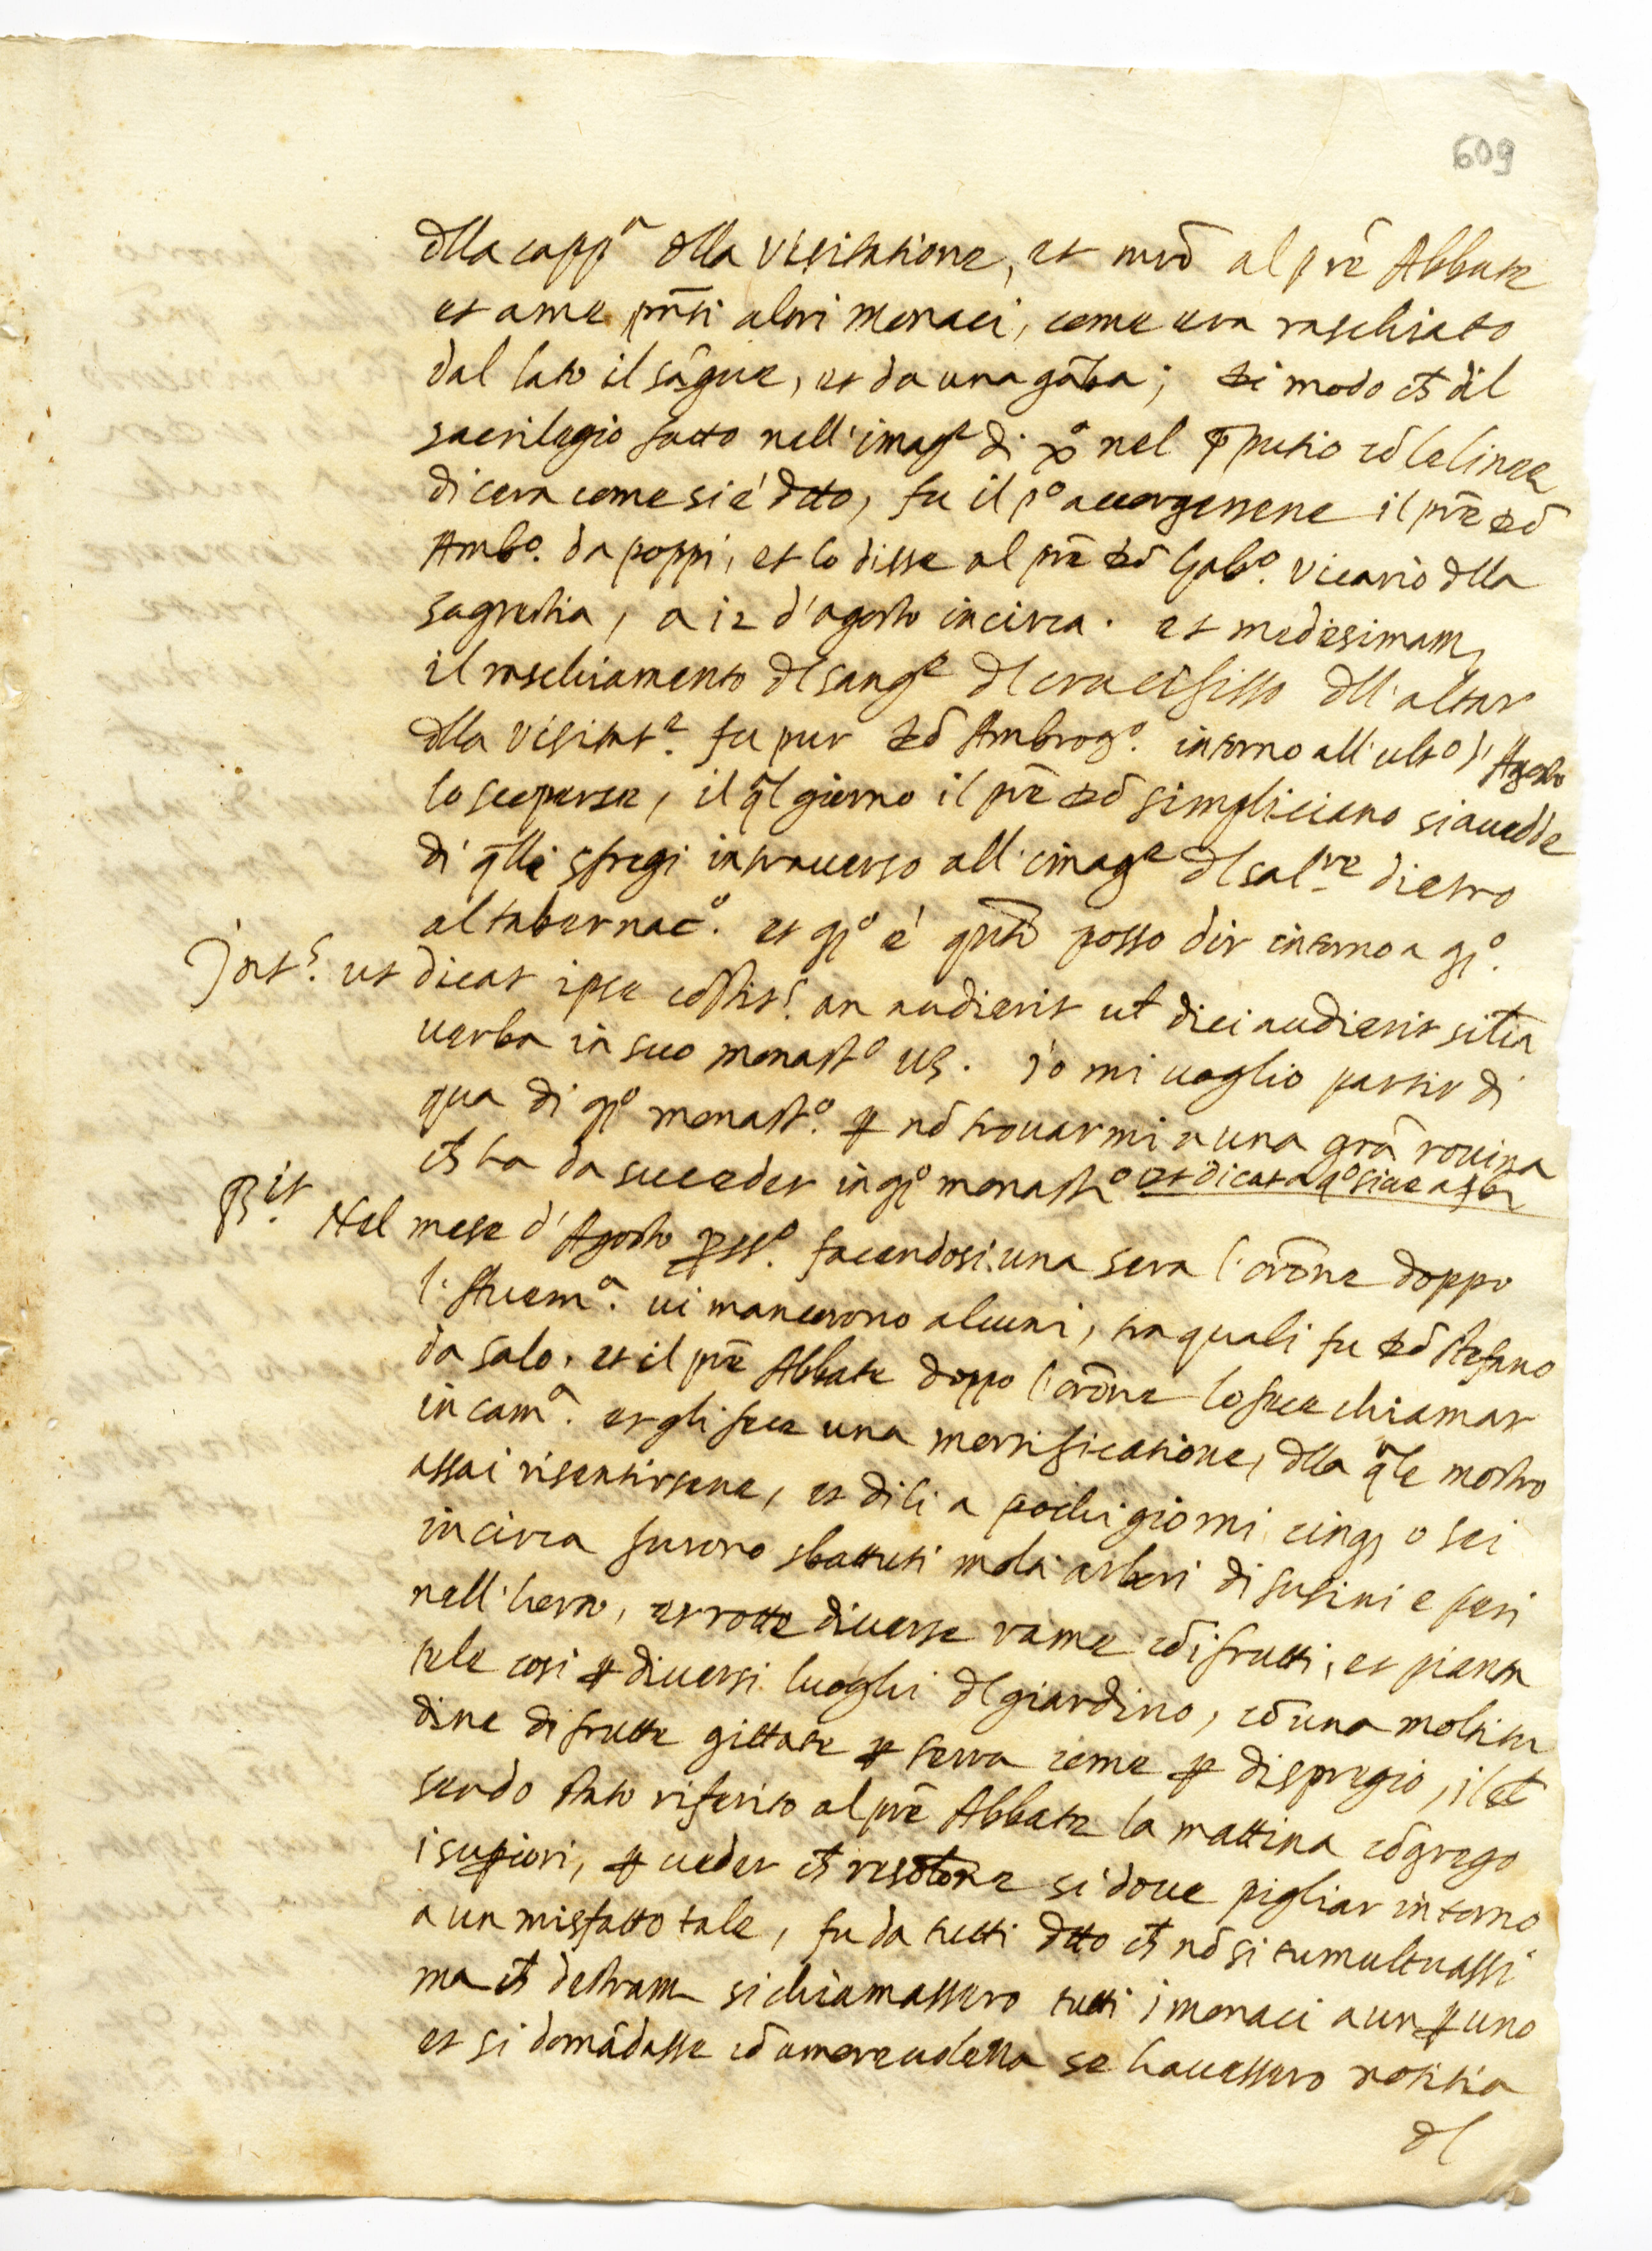 609
dlla capp.a dlla Visitatione, et mrò al prē Abbate
et a me pñti altri Monaci, come era raschiato
dal lato il sāgue, et da una gāba; di modo ch dil
sacrilegio fatto nell'imag.e di xo nel pputio cō le linee
di cera come si è dtto, fu il po accorgersene il prē Dō
Ambo. da poppi, et lo disse al prē Dō Gabo. Vicario dlla
sagrestia, a 12 d'agosto in circa. et medesimam.
il raschiamento dl sang.e dl crucifisso dll'altar
dlla Visitat.e fu pur Dō Ambrogo. intorno all'ulto d'Agosto
lo scoperse, il ql giorno il prē Dō simpliciano si avedde
di qlli sfregi in traverso all'imag.e dl sal.re dietro
al tabernac.o et qo è qnto posso dir intorno a qo.
Int.s ut dicat ipse costit.s an audierit ut dici audierit similia
verba in suo monasto us. io mi voglio partir di
qua di qo monasto. p nō trovarmi a una grā rovina
ch ha da succeder in qo monasto et dicat a qo sive a qbus
R.it Nel mese d'Agosto pss.o facendosi una sera l'orōne doppo
l'Avem.a vi mancorono alcuni, tra quali fu Dō stefano
da salo. et il prē Abbate doppo l'orōne lo fece chiamar
in cam.a et gli fece una mortificatione, dlla qle mostro
assai risentirsene, et di li a pochi giorni cinq o sei
in circa furono sbattuti molti arbori di susini e peri
nell'horto, et rotte diverse rame cō i frutti, et pianta
tele cosi p diversi luoghi dl giardino, cō una moltitu
dine di frutte gittate p terra come p dispregio, il ch
sendo stato riferito al prē Abbate la mattina cōgrego
i supiori, p veder ch resolōne si dove pigliar intorno
a un misfatto tale, fu da tutti dtto ch nō si tumultuassi
ma ch destram. si chiamassero tutti i monaci a un p uno
et si domādasse cō amorevolezza se havessero notitia
dl